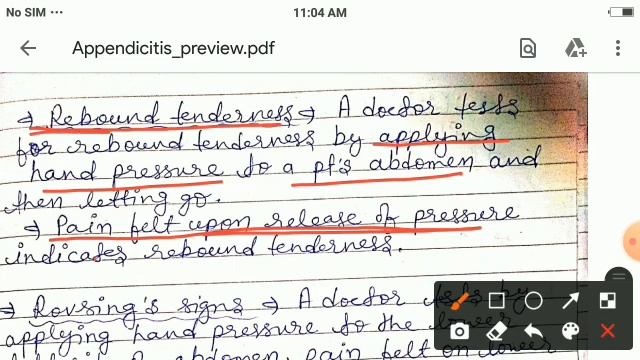 No SIM ...
11:04 AM
Appendicitis_preview.pdf
→ Rebound tenderness → A doctor tests
for rebound tenderness by applying
hand pressure to a pt's abdomen and
then letting go.
→ Pain felt upon release of pressure
indicates rebound tenderness.
→ Rovsing's signs → A doctor tests by
applying hand pressure to the lower
abdomen, pain felt on lower